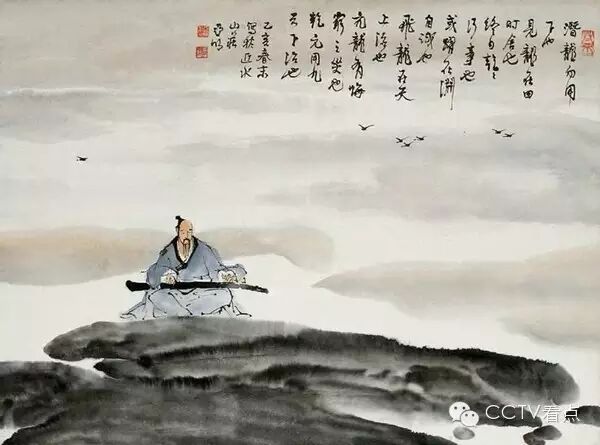 潛龍勿用
下也
見龍在田
时舍也
終日乾乾
行事也
或躍在淵
自試也
飛龍在天
上治也
亢龍有悔
窮之災也
乾元用九
天下治也
乙亥春末
寫於近水
山莊
亚明
CCTV看点